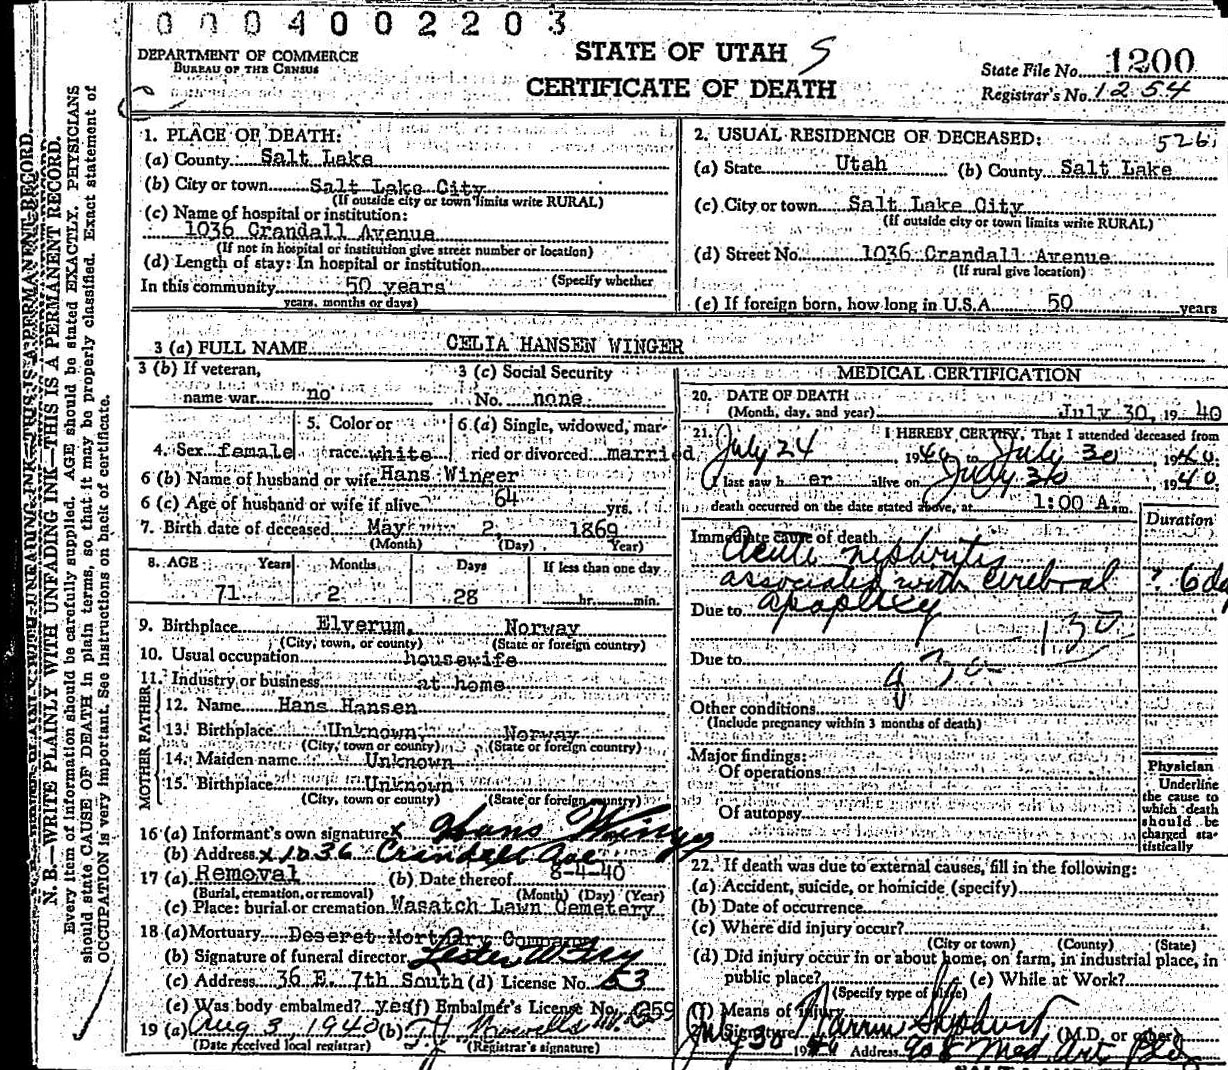 0 0 0 4 0 0 2 2 0 3
DEPARTMENT OF COMMERCE
BUREAU OF THE CENSUS
STATE OF UTAH S
CERTIFICATE OF DEATH
State File No. 1200
Registrar's No. 1254
N. B.—WRITE PLAINLY WITH UNFADING INK—THIS IS A PERMANENT RECORD.
Every item of information should be carefully supplied. AGE should be stated EXACTLY. PHYSICIANS
should state CAUSE OF DEATH in plain terms, so that it may be properly classified. Exact statement of
OCCUPATION is very important. See instructions on back of certificate.
1. PLACE OF DEATH:
(a) County Salt Lake
(b) City or town Salt Lake City
(If outside city or town limits write RURAL)
(c) Name of hospital or institution:
1036 Crandall Avenue
(If not in hospital or institution give street number or location)
(d) Length of stay: In hospital or institution
(Specify whether
In this community 50 years
years, months or days)
2. USUAL RESIDENCE OF DECEASED: 526
(a) State Utah (b) County Salt Lake
(c) City or town Salt Lake City
(If outside city or town limits write RURAL)
(d) Street No. 1036 Crandall Avenue
(If rural give location)
(e) If foreign born, how long in U.S.A. 50 years
3 (a) FULL NAME CELIA HANSEN WINGER
3 (b) If veteran, 3 (c) Social Security
name war no No. none
4. Sex female 5. Color or race white 6 (a) Single, widowed, married or divorced married
6 (b) Name of husband or wife Hans Winger
6 (c) Age of husband or wife if alive 64 yrs.
7. Birth date of deceased May 2, 1869
(Month) (Day) Year)
8. AGE Years Months Days If less than one day
71 2 28 hr. min.
9. Birthplace Elverum, Norway
(City, town, or county) (State or foreign country)
10. Usual occupation housewife
11. Industry or business at home
FATHER
12. Name Hans Hansen
13. Birthplace Unknown, Norway
(City, town or county) (State or foreign country)
MOTHER
14. Maiden name Unknown
15. Birthplace Unknown
(City, town or county) (State or foreign country)
16 (a) Informant's own signature x Hans Winger
(b) Address x 1036 Crandall Ave
17 (a) Removal (b) Date thereof 8-4-40
(Burial, cremation, or removal) (Month) (Day) (Year)
(c) Place: burial or cremation Wasatch Lawn Cemetery
18 (a) Mortuary Deseret Mortuary Company
(b) Signature of funeral director
(c) Address 36 E. 7th South (d) License No. 53
(e) Was body embalmed? yes (f) Embalmer's License No. 259
19 (a) Aug 3, 1940 (b)
(Date received local registrar) (Registrar's signature)
MEDICAL CERTIFICATION
20. DATE OF DEATH
(Month, day, and year) July 30, 1940
21. I HEREBY CERTIFY, That I attended deceased from
July 24, 1940 to July 30, 1940.
I last saw her alive on July 30, 1940.
death occurred on the date stated above, at 1:00 A m.
Duration
Immediate cause of death
Acute nephritis
associated with cerebral ? 6 da
Due to apoplexy
130
Due to
930
Other conditions
(Include pregnancy within 3 months of death)
Major findings:
Of operations
Of autopsy
Physician
Underline
the cause to
which death
should be
charged sta-
tistically
22. If death was due to external causes, fill in the following:
(a) Accident, suicide, or homicide (specify)
(b) Date of occurrence
(c) Where did injury occur?
(City or town) (County) (State)
(d) Did injury occur in or about home, on farm, in industrial place, in
public place? (e) While at Work?
(Specify type of place)
(f) Means of injury
Signature (M.D. or other)
July 30 1940 Address 908 Med Art Bld